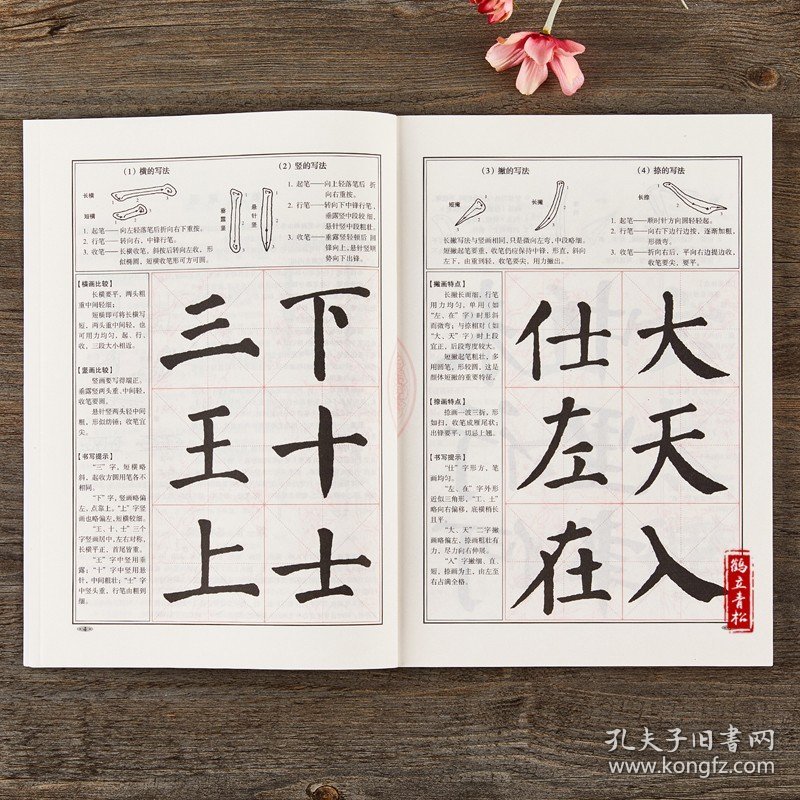 (1) 横的写法
长横
短横
1. 起笔——向左轻落笔后折向右下重按。
2. 行笔——转向右、中锋行笔。
3. 收笔——长横收笔，斜按后转向左收、形
似椭圆，短横收笔形可方可圆。
(2) 竖的写法
垂露竖
悬针竖
1. 起笔——向上轻落笔后折
向右重按。
2. 行笔——转向下中锋行笔，
垂露竖中段较细，
悬针竖中段粗壮。
3. 收笔——垂露竖轻顿后回
锋向上,悬针竖顺
势向下出锋。
【横画比较】
长横要平，两头粗
重中间轻细；
短横即可将长横写
短，两头重中间轻，也
可用力均匀，起、行、
收、三段大小相近。
【竖画比较】
竖画要写得端正。
垂露竖两头重、中间轻，
收笔要圆。
悬针竖两头轻中间
粗，形似纺锤；收笔宜
尖。
【书写提示】
“三”字，短横略
斜，起收方圆用笔各不
相同。
“下”字，竖画略偏
左，点靠上。“上”字竖
画也略偏左，短横较细。
“王、十、士”三个
字竖画居中，左右对称，
长横平正，首尾皆重。
“王”字中竖用垂
露；“十”字中竖用悬
针，中间粗壮；“士”字
中竖头重，行笔由粗到
细。
三 下
王 十
上 士
(3) 撇的写法
短撇
长撇
长撇写法与竖画相同,只是微向左弯,中段略细。
短撇起笔要重，收笔仍应保持中锋、形直，斜向
左下，由重到轻，收笔要尖，用力撇出。
(4) 捺的写法
长捺
1. 起笔——顺时针方向圆轻轻起。
2. 行笔——向右下边行边按，逐渐加粗，
形微弯。
3. 收笔——折向右后，平向右边提边收，
收笔要尖、要平。
【撇画特点】
长撇长画细，行笔
用力均匀，单用（如
“左、在”字）时形斜
而微弯；与捺相对（如
“大、天”字）时上段
宜正，后段弯度较大。
短撇起笔粗壮，多
用圆笔，形较圆，这是
颜体短撇的重要特征。
【捺画特点】
捺画一波三折，形
如扫，收笔成雁尾状；
出锋要平，切忌上翘。
【书写提示】
“仕”字形方，笔
画均匀。
“左、在”字外形
近似三角形，“工、土”
略向右偏移，底横稍长
且平。
“大、天”二字撇画
略偏左、捺画粗壮有
力，尽力向右伸展。
“入”字撇细、直、
短，捺画为主，由左至
右占满全格。
仕 大
左 天
在 入
鹤立青松
孔夫子旧书网
www.kongfz.com